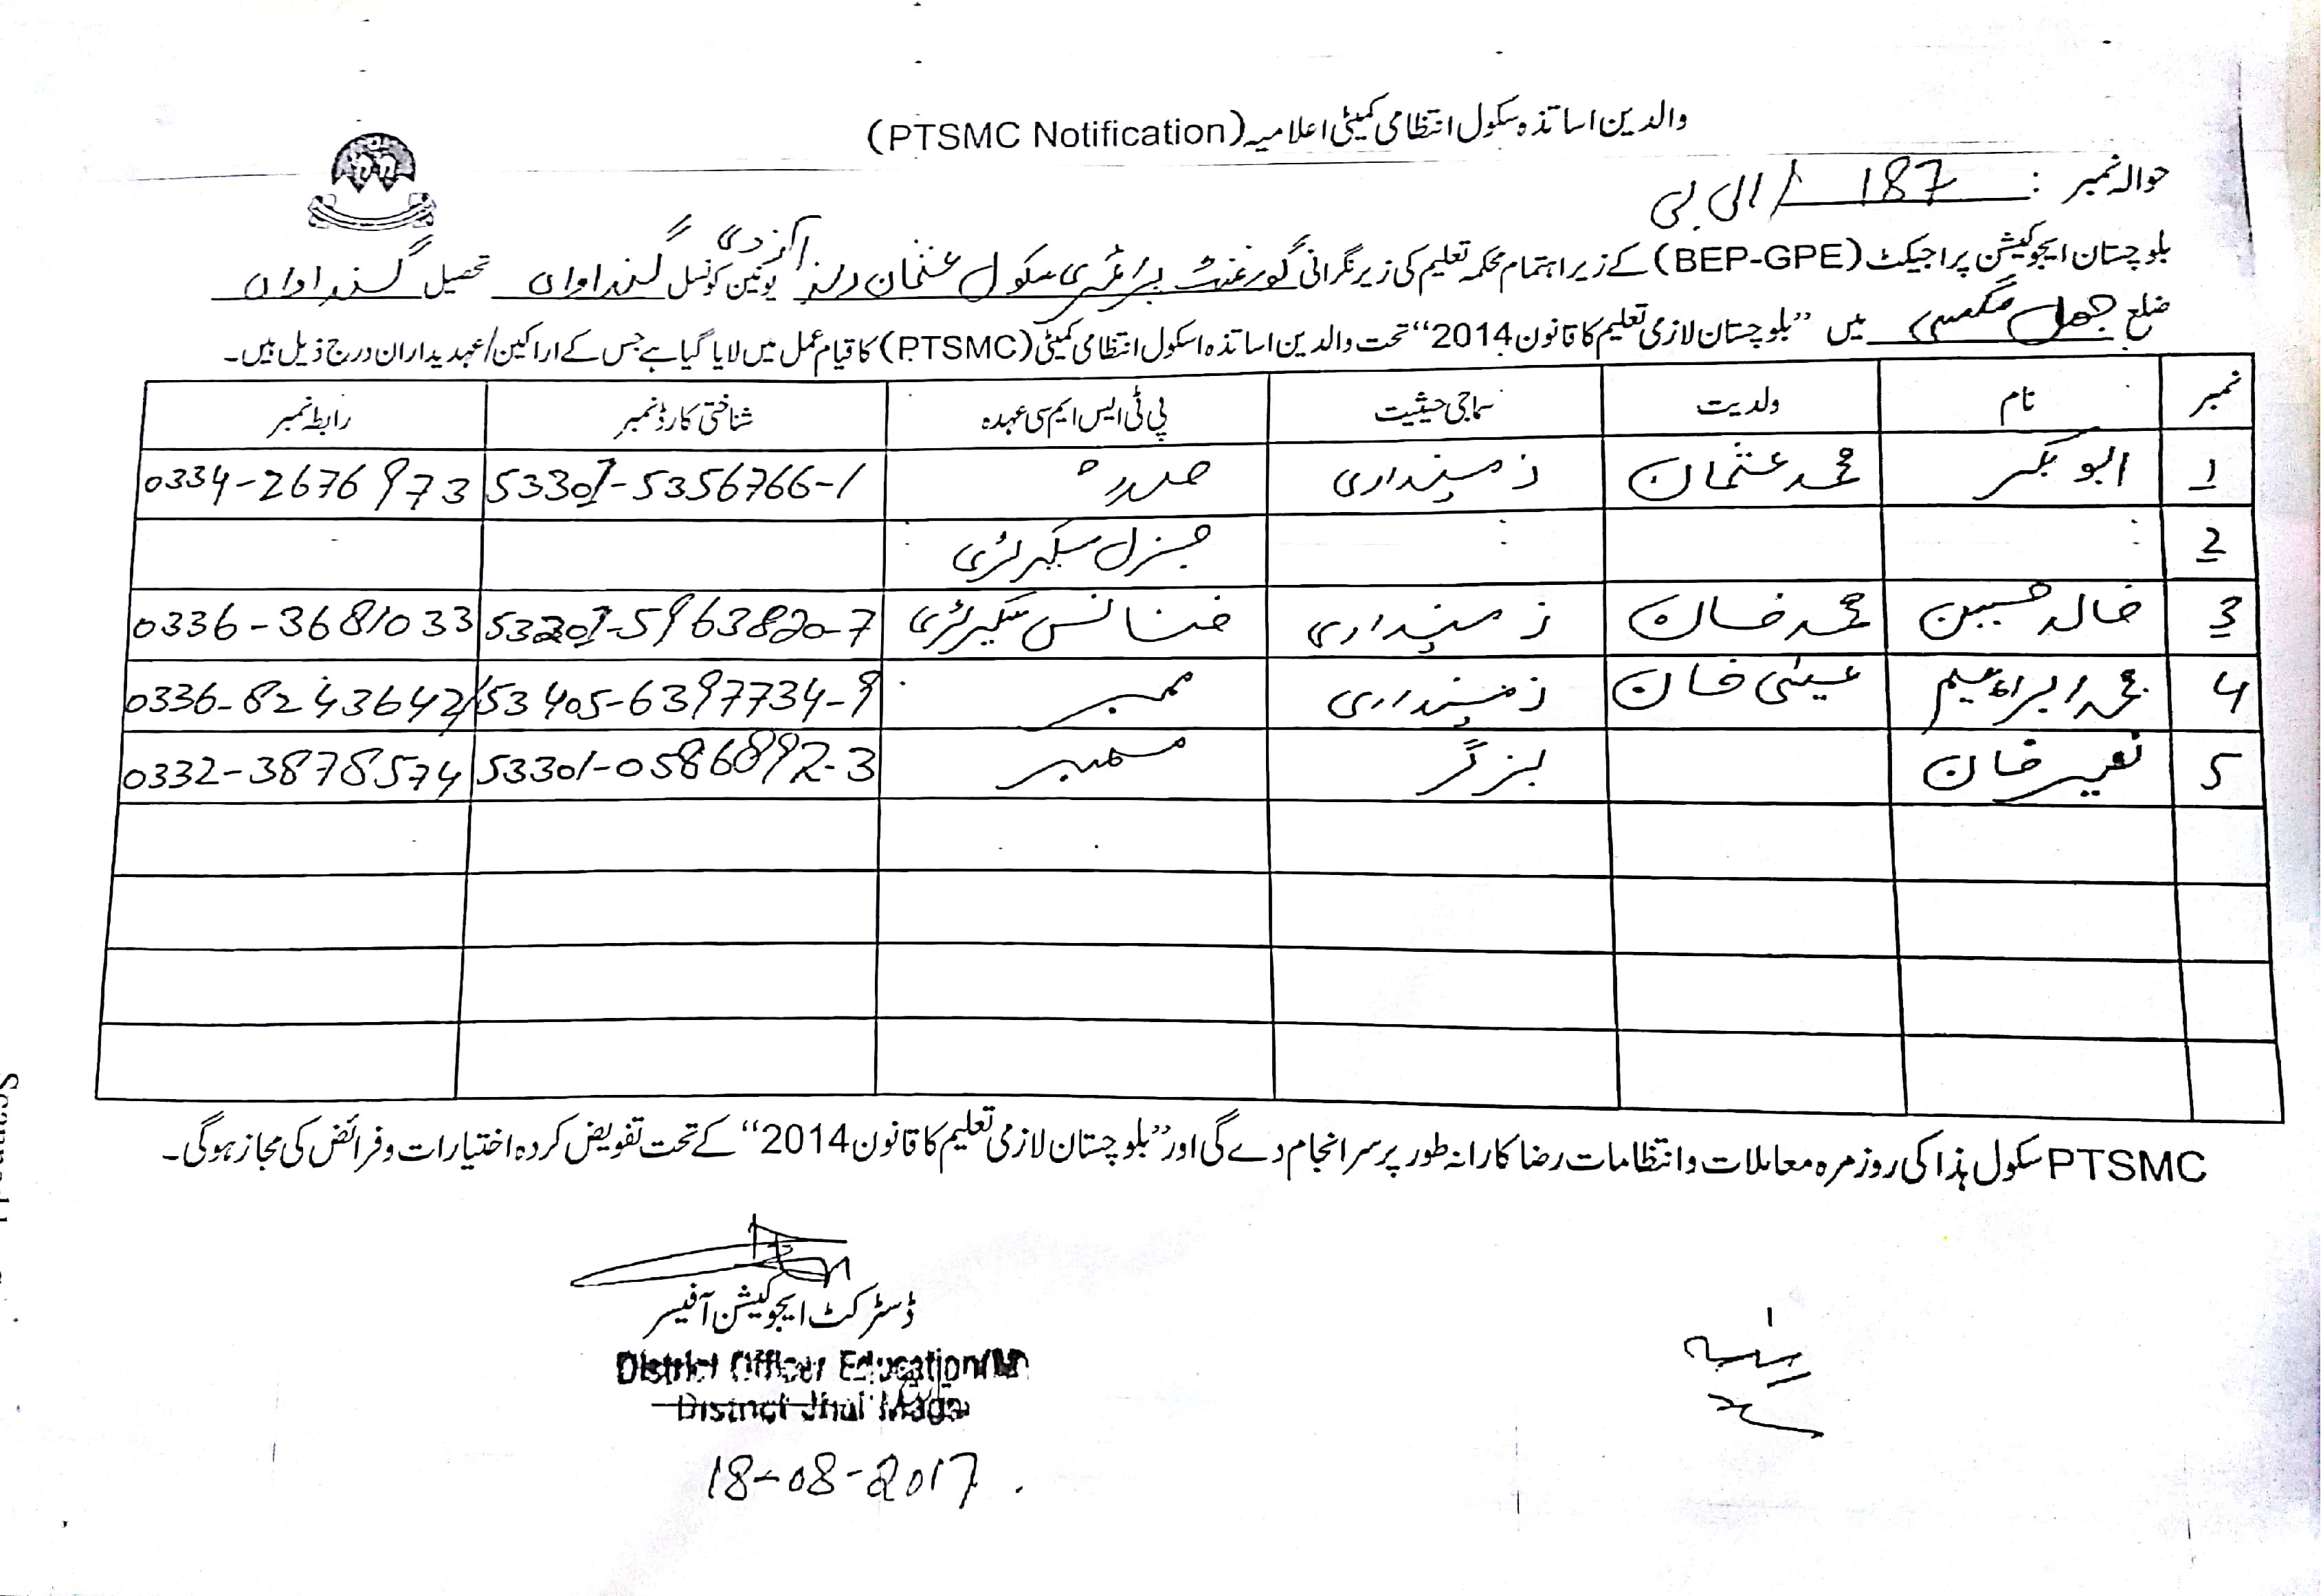 والدین اساتذہ سکول انتظامی کمیٹی اعلامیہ (PTSMC Notification)
حوالہ نمبر : 187 / ال بی
بلوچستان ایجوکیشن پراجیکٹ (BEP-GPE) کے زیر اہتمام محکمہ تعلیم کی زیر نگرانی گورنمنٹ پرائمری سکول عثمان یونین کونسل گنداواں تحصیل گنداواں
ضلع جھل مگسی میں ”بلوچستان لازمی تعلیم کا قانون 2014“ تحت والدین اساتذہ اسکول انتظامی کمیٹی (PTSMC) کا قیام عمل میں لایا گیا ہے جس کے اراکین/عہدیداران درج ذیل ہیں۔
نمبر نام ولدیت سماجی حیثیت پی ٹی ایس ایم سی عہدہ شناختی کارڈ نمبر رابطہ نمبر
1 ابوبکر محمد عثمان زمینداری صدر 53301-5356766-1 0334-2676973
2 جنرل سیکرٹری
3 خالد حسین محمد خان زمینداری فنانس سیکرٹری 53201-5963820-7 0336-3681033
4 محمد ابراہیم عیسیٰ خان زمینداری ممبر 53405-6397734-9 0336-8243642
5 نصیر خان بزگر ممبر 53301-0586892-3 0332-3878574
PTSMC سکول ہذا کی روز مرہ معاملات و انتظامات رضا کارانہ طور پر سرانجام دے گی اور ”بلوچستان لازمی تعلیم کا قانون 2014“ کے تحت تفویض کردہ اختیارات و فرائض کی مجاز ہوگی۔
ڈسٹرکٹ ایجوکیشن آفیسر
District Officer Education
District Jhal Mags
18-08-2017